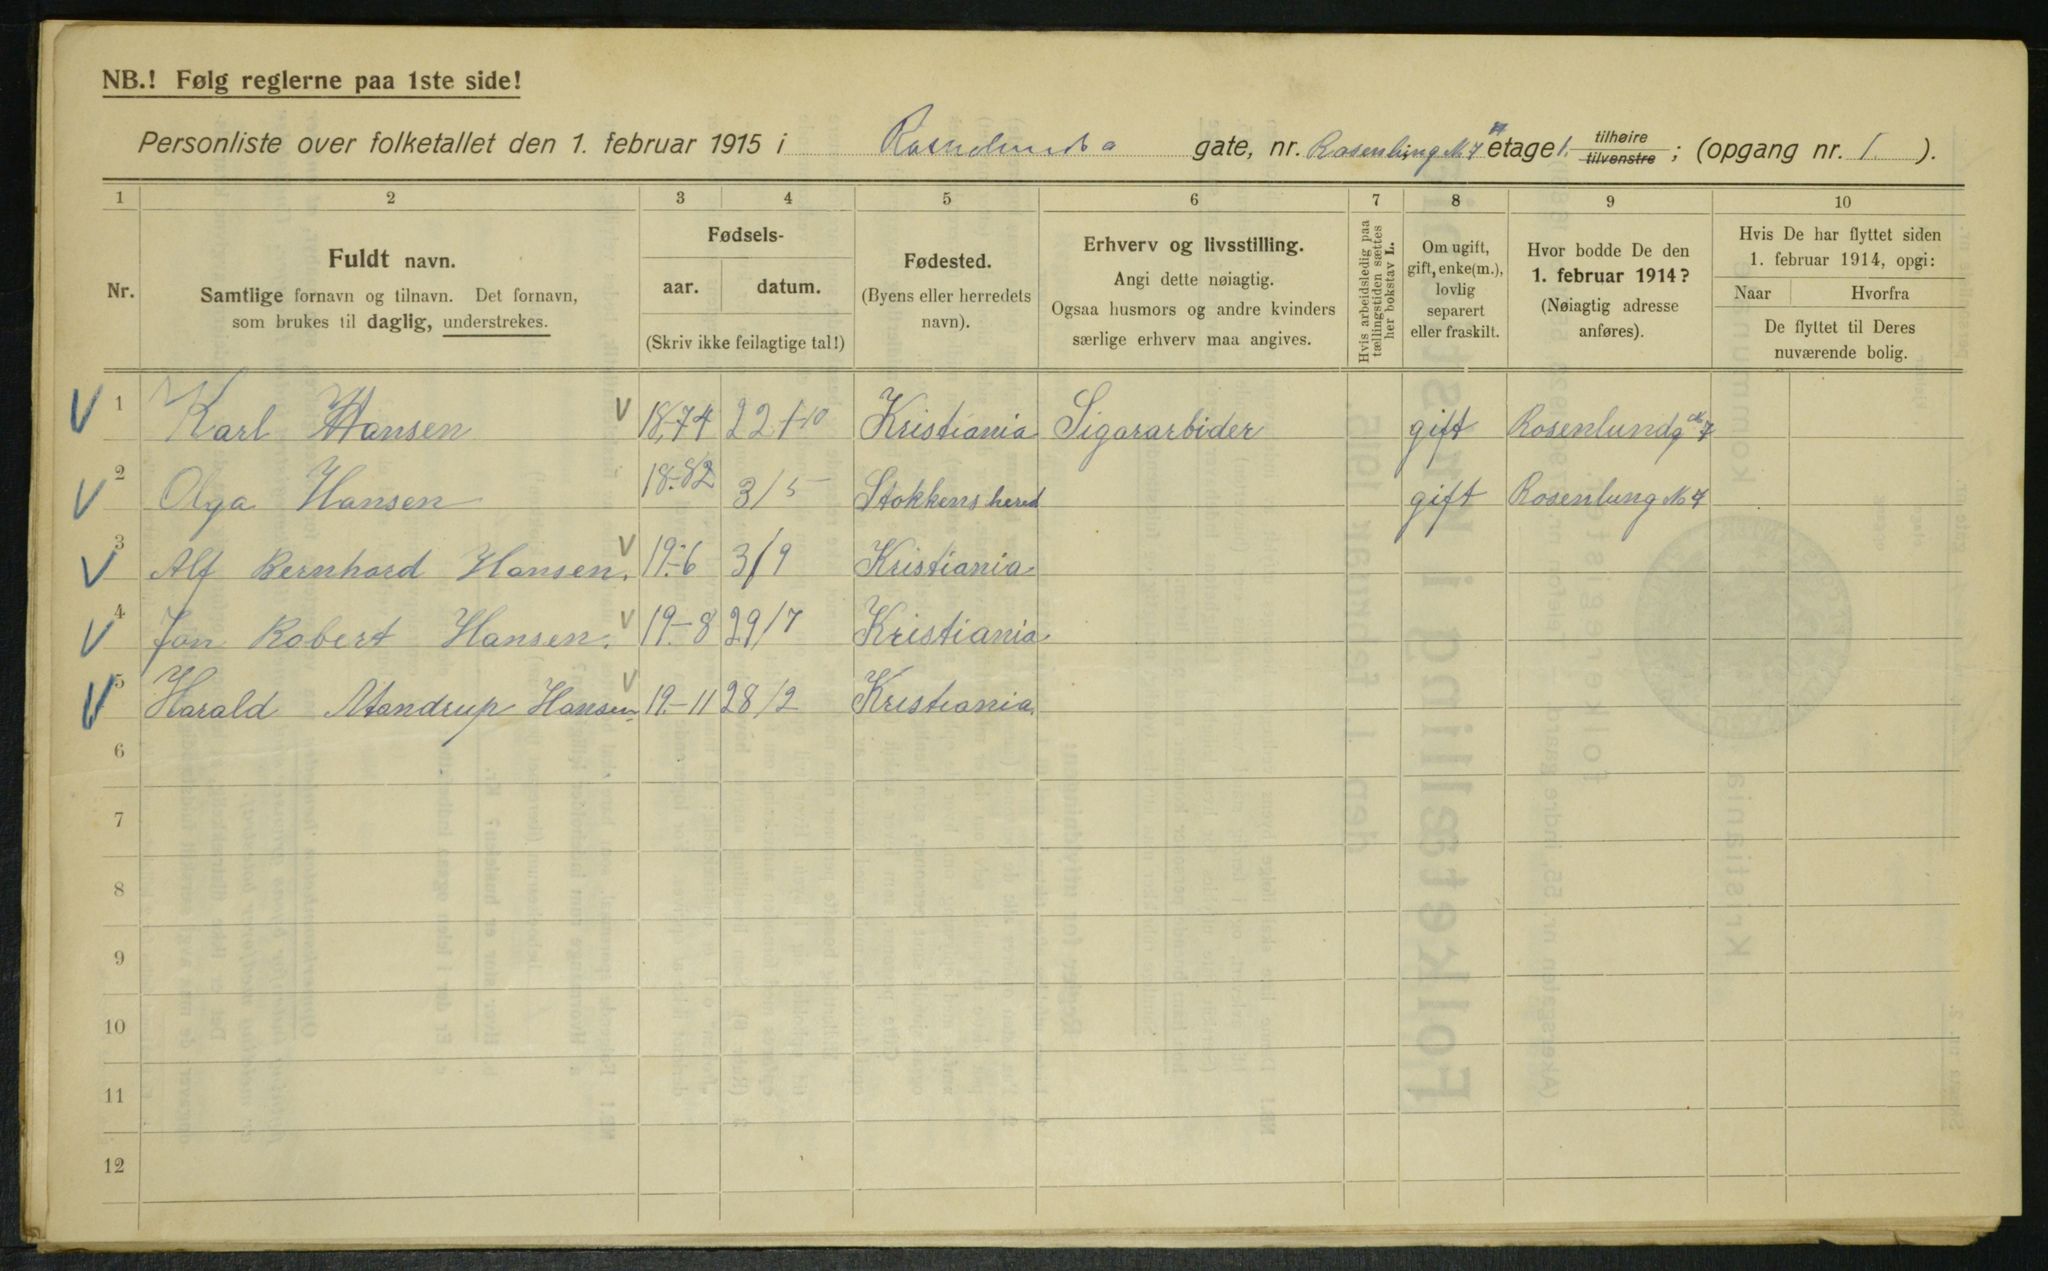 NB.! Følg reglerne paa 1ste side!
Personliste over folketallet den 1. februar 1915 i gate, nr. Rosenlung No 7 etage 1. tilhøire tilvenstre ; (opgang nr. 1. ).
1 2 3 4 5 6 7 8 9 10
Nr.
Fuldt navn.
Samtlige fornavn og tilnavn. Det fornavn,
som brukes til daglig, understrekes.
Fødsels-
aar. datum.
(Skriv ikke feilagtige tal!)
Fødested.
(Byens eller herredets
navn).
Erhverv og livsstilling.
Angi dette nøiagtig.
Ogsaa husmors og andre kvinders
særlige erhverv maa angives.
Hvis arbeidsledig paa
tællingstiden sættes
her bokstav L.
Om ugift,
gift, enke(m.),
lovlig
separert
eller fraskilt.
Hvor bodde De den
1. februar 1914?
(Nøiagtig adresse
anføres).
Hvis De har flyttet siden
1. februar 1914, opgi:
Naar Hvorfra
De flyttet til Deres
nuværende bolig.
1 Karl Hansen 18-74 22/10 Kristiania Sigararbider gift Rosenlundg No 7
2 Olga Hansen 18-82 3/5 Stokkens hered gift Rosenlung No 7
3 Alf Bernhard Hansen. 19-6 3/9 Kristiania
4 Jon Robert Hansen. 19-8 29/7 Kristiania
5 Harald Standrup Hansen 19-11 28/2 Kristiania.
6
7
8
9
10
11
12